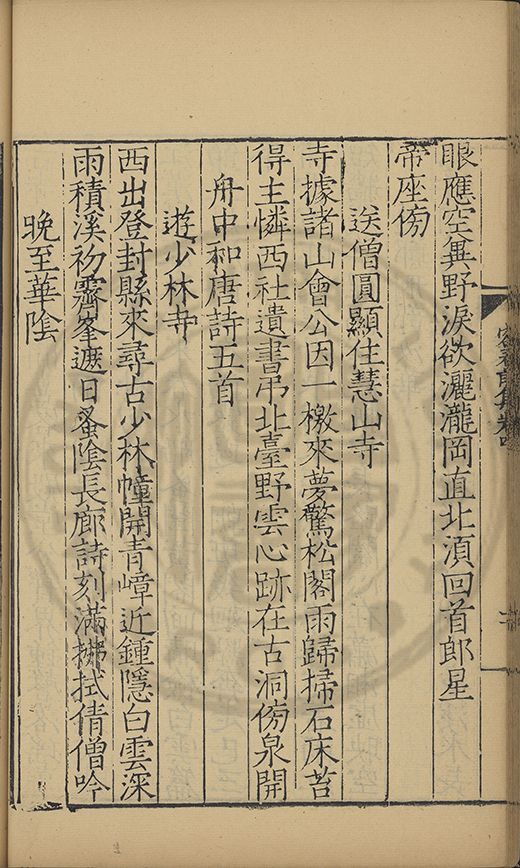 眼應空冀野淚欲灑瀧岡直北湏回首郎星
帝座傍
送僧圓顯住慧山寺
寺據諸山會公因一檄來夢驚松閣雨歸掃石床苔
得主憐西社遺書弔北臺野雲心跡在古洞傍泉開
舟中和唐詩五首
遊少林寺
西出登封縣來尋古少林幢開青嶂近鍾隱白雲深
雨積溪初霽峯遮日蚤陰長廊詩刻滿拂拭倩僧吟
晚至華陰